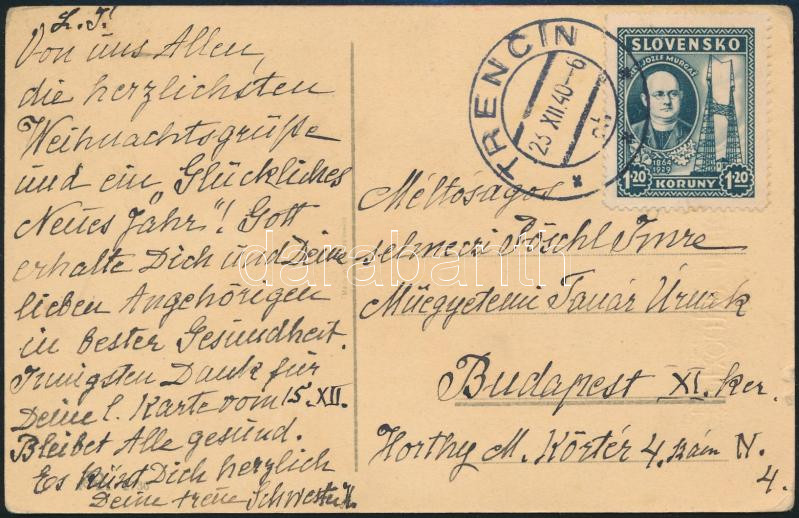 L. I.!
Von uns Allen,
die herzlichsten
Weihnachtsgrüße
und ein „Glückliches
Neues Jahr"! Gott
erhalte Dich und Deine
lieben Angehörigen
in bester Gesundheit.
Innigsten Dank für
Deine l. Karte vom 15. XII.
Bleibet Alle gesund.
Es küsst Dich herzlich
Deine treue Schwester
TRENČÍN
23 XII. 40 - 6
SLOVENSKO
JOZEF MURGAŠ
1864
1929
1.20 KORUNY 1.20
Méltóságos
selmeczi Pöschl Imre
Műegyetemi Tanár Úrnak
Budapest XI. ker.
Horthy M. Körtér 4. szám N.
4.
darabanth